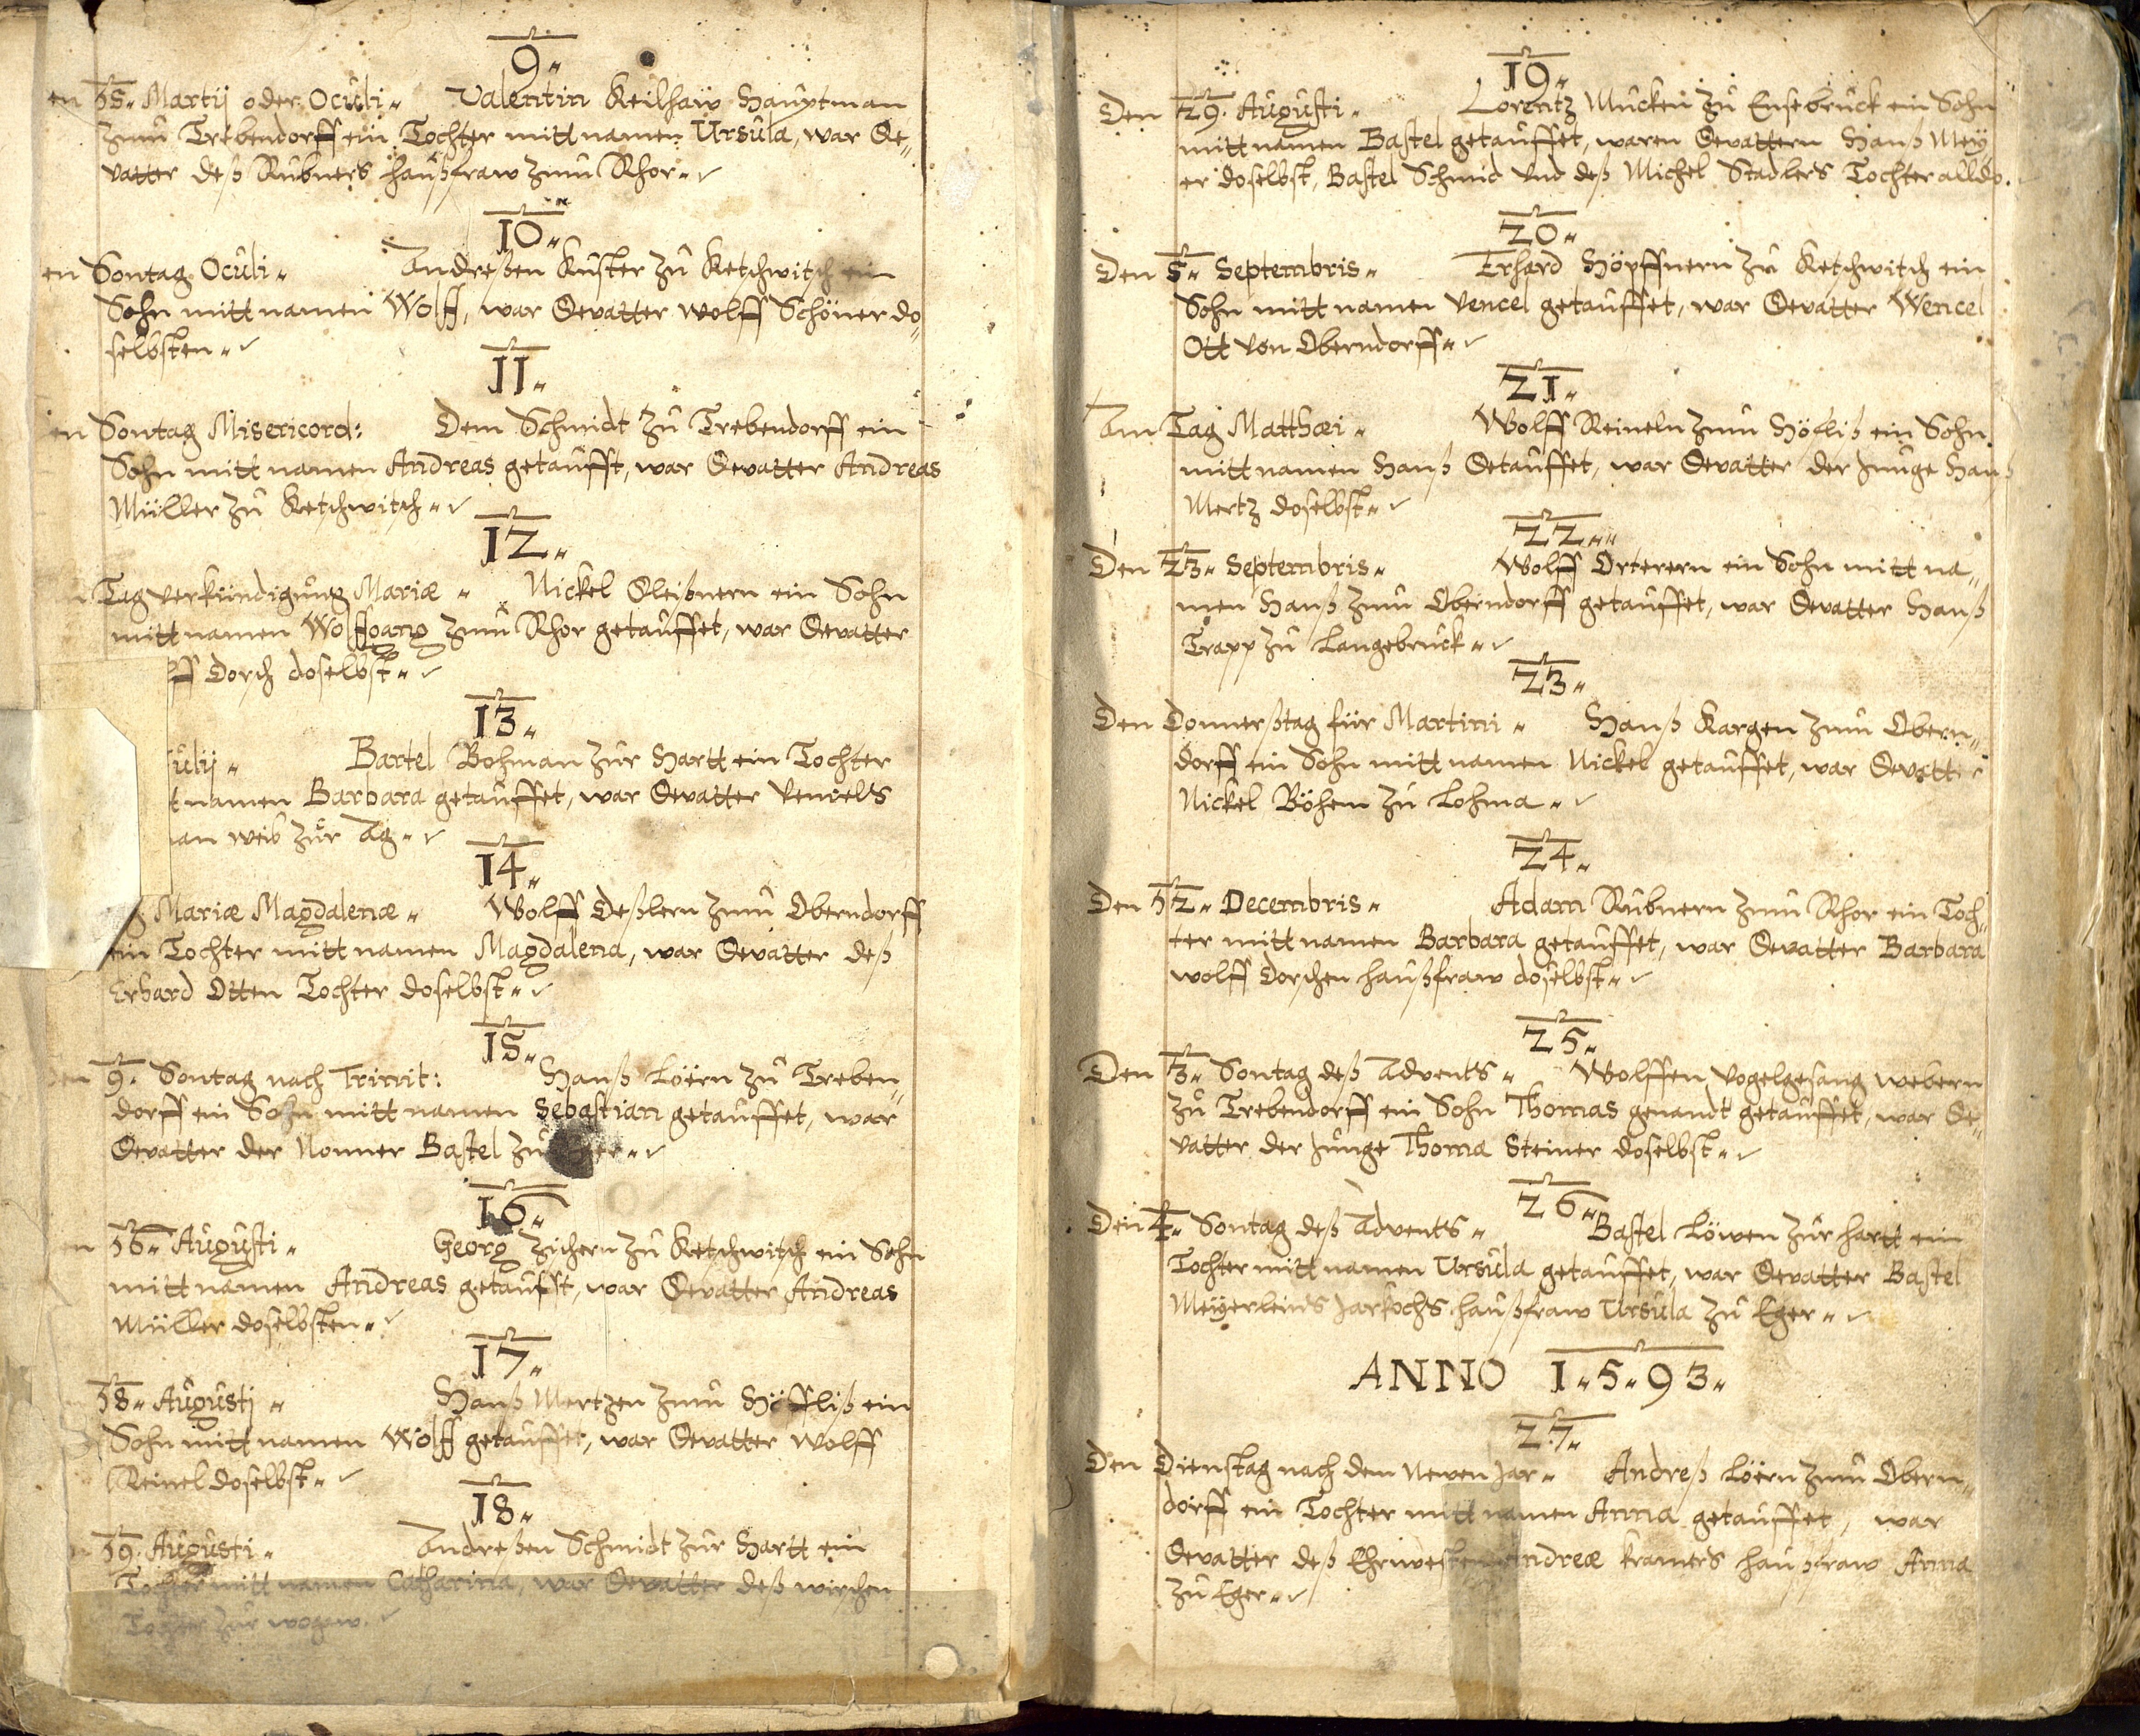 9.
en 15. Martij oder Oculi. Valentin Keilhaw Hauptman
zum Trebendorff ein Tochter mitt namen Ursula, war Ge„
vatter deß Rubners haußfraw zum Rhor.
10.
en Sontag Oculi. Andreßen Kuster zu Ketschwitsch ein
Sohn mitt namen Wolff, war Gevatter Wolff Schöner do„
selbsten.
11.
en Sontag Misericord: Dem Schmidt zu Trebendorff ein
Sohn mitt namen Andreas getaufft, war Gevatter Andreas
Müller zu Ketschwitsch.
12.
Tag Verkündigung Mariæ. Nickel Gleißnern ein Sohn
mitt namen Wolffgang zum Rhor getauffet, war Gevatter
ff Dorsch doselbst.
13.
ulij. Bartel Bohman zur Hartt ein Tochter
t namen Barbara getauffet, war Gevatter
an weib zur Ag.
14.
g Mariæ Magdalenæ. Wolff Geßlern zum Oberndorff
ein Tochter mitt namen Magdalena, war Gevatter deß
Erhard Otten Tochter doselbst.
15.
en 9. Sontag nach Trinit: Hanß Löern zu Treben„
dorff ein Sohn mitt namen Sebastian getauffet, war
Gevatter der Nonner Bastel zu
16.
en 16. Augusti. Georg Zichern zu Ketschwitsch ein Sohn
mitt namen Andreas getaufft, war Gevatter Andreas
Müller doselbsten.
17.
18. Augusti. Hanß Mertzen zum Höffliß ein
Sohn mitt namen Wolff getauffet, war Gevatter Wolff
Reinel doselbst.
18.
19. Augusti. Andreßen Schmidt zur Hartt ein
Tochter mitt namen Catharina, war Gevatter deß
Tochter zur
19.
Den 29. Augusti. Lorentz Mucken zu Ensebruck ein Sohn
mitt namen Bastel getauffet, waren Gevattern Hanß Mey
er doselbst, Bastel Schmid und deß Michel Stadlers Tochter alldo.
20.
Den 5. Septembris. Erhard Höpffnern zu Ketschwitch ein
Sohn mitt namen Vencel getauffet, war Gevatter Wencel
Ott von Oberndorff.
21.
Am Tag Matthæi. Wolff Reineln zum Höfliß ein Sohn
mitt namen Hanß Getauffet, war Gevatter der Junge Hanß
Mertz doselbst.
22.
Den 23. Septembris. Wolff Orterern ein Sohn mitt na„
men Hanß zum Oberndorff getauffet, war Gevatter Hanß
Trapp zu Langebruck.
23.
Den Donnerßtag für Martini. Hanß Kargen zum Obern„
dorff ein Sohn mitt namen Nickel getauffet, war Gevatter
Nickel Böhem zu Lohma.
24.
Den 12. Decembris. Adam Rubnern zum Rhor ein Toch„
ter mitt namen Barbara getauffet, war Gevatter Barbara
Wolff Dorschen haußfraw doselbst.
25.
Den 3. Sontag deß Advents. Wolffen Vogelgesang Webern
zu Trebendorff ein Sohn Thomas genandt getauffet, war Ge„
vatter der Junge Thoma Steiner doselbst.
26.
Den 4. Sontag deß Advents. Bastel Löwen zur Hartt ein
Tochter mitt namen Ursula getauffet, war Gevatter Bastel
Meyerleins Jarkochs haußfraw Ursula zu Eger.
ANNO 1.5.93.
27.
Den Dienstag nach dem Newen Jar. Andreß Löern zum Obern„
dorff ein Tochter mitt namen Anna getauffet, war
Gevatter deß Ehrnvesten Andreæ Kramers haußfraw Anna
zu Eger.